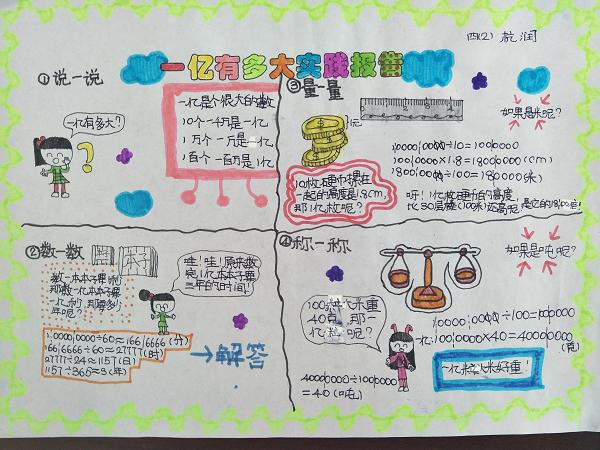 四(2) 杭润
一亿有多大实践报告
①说一说
一亿有多大?
一亿是个很大的数
10个一千万是一亿
1万个一万是一亿
1百个一百万是1亿
③量一量
1元
10枚1元硬币摞在
一起的高度是1.8cm,
那1亿枚呢?
如果是米呢?
100000000÷10=10000000
10000000×1.8=18000000(cm)
18000000÷100=180000(米)
呀!1亿枚硬币的高度,
比30层楼(100米)还高呢,是它的1800倍!
②数一数
哇!哇!原来数
完1亿本本子要
三年的时间!
→解答
100000000÷60≈1666666(分)
1666666÷60≈27777(时)
27777÷24≈1157(日)
1157÷365≈3(年)
④称一称
如果是吨呢?
100粒大米重
40克,那一
亿粒呢?
100000000÷100=1000000
一亿:1000000×40=40000000
(克)
40000000÷1000000
=40(吨)
一亿粒米好重!